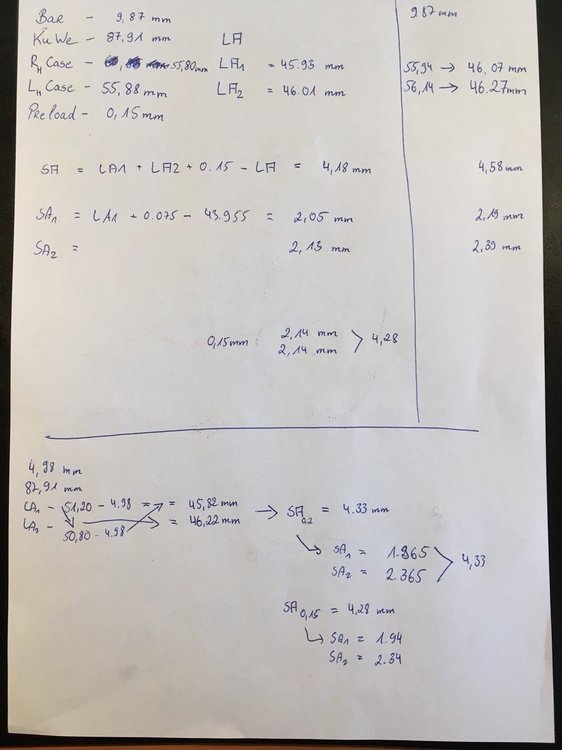 Bar - 9,87 mm
9.87 mm
KuWe - 87,91 mm LA
RH Case - 55,80mm LA1 = 45.93 mm
55,94 → 46,07 mm
LH Case - 55,88 mm LA2 = 46.01 mm
56,14 → 46.27mm
Preload - 0,15mm
SA = LA1 + LA2 + 0.15 - LA = 4,18 mm
4,58 mm
SA1 = LA1 + 0.075 - 43.955 = 2,05 mm
2,19 mm
SA2 = 2,13 mm
2,39 mm
0,15mm 2,14 mm
2,14 mm > 4,28
4,98 mm
87,91 mm
LA1 - 51,20 - 4.98 = = 45,82 mm → SA0,2 = 4.33 mm
LA2 - 50,80 - 4.98 = 46,22 mm
SA1 = 1.965
SA2 = 2.365 > 4,33
SA0,15 = 4,28 mm
SA1 = 1.94
SA2 = 2.34